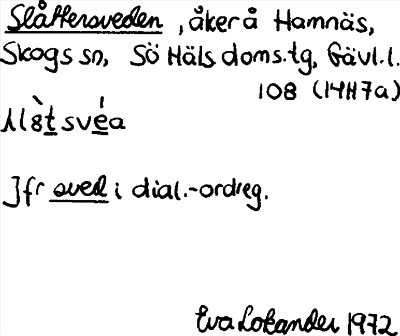 Slåttersveden, åker å Hamnäs,
Skogs sn, Sö Häls doms.tg, Gävl.l.
108 (14H7a)
Jfr sved i dial.-ordreg.
Eva Lokander 1972